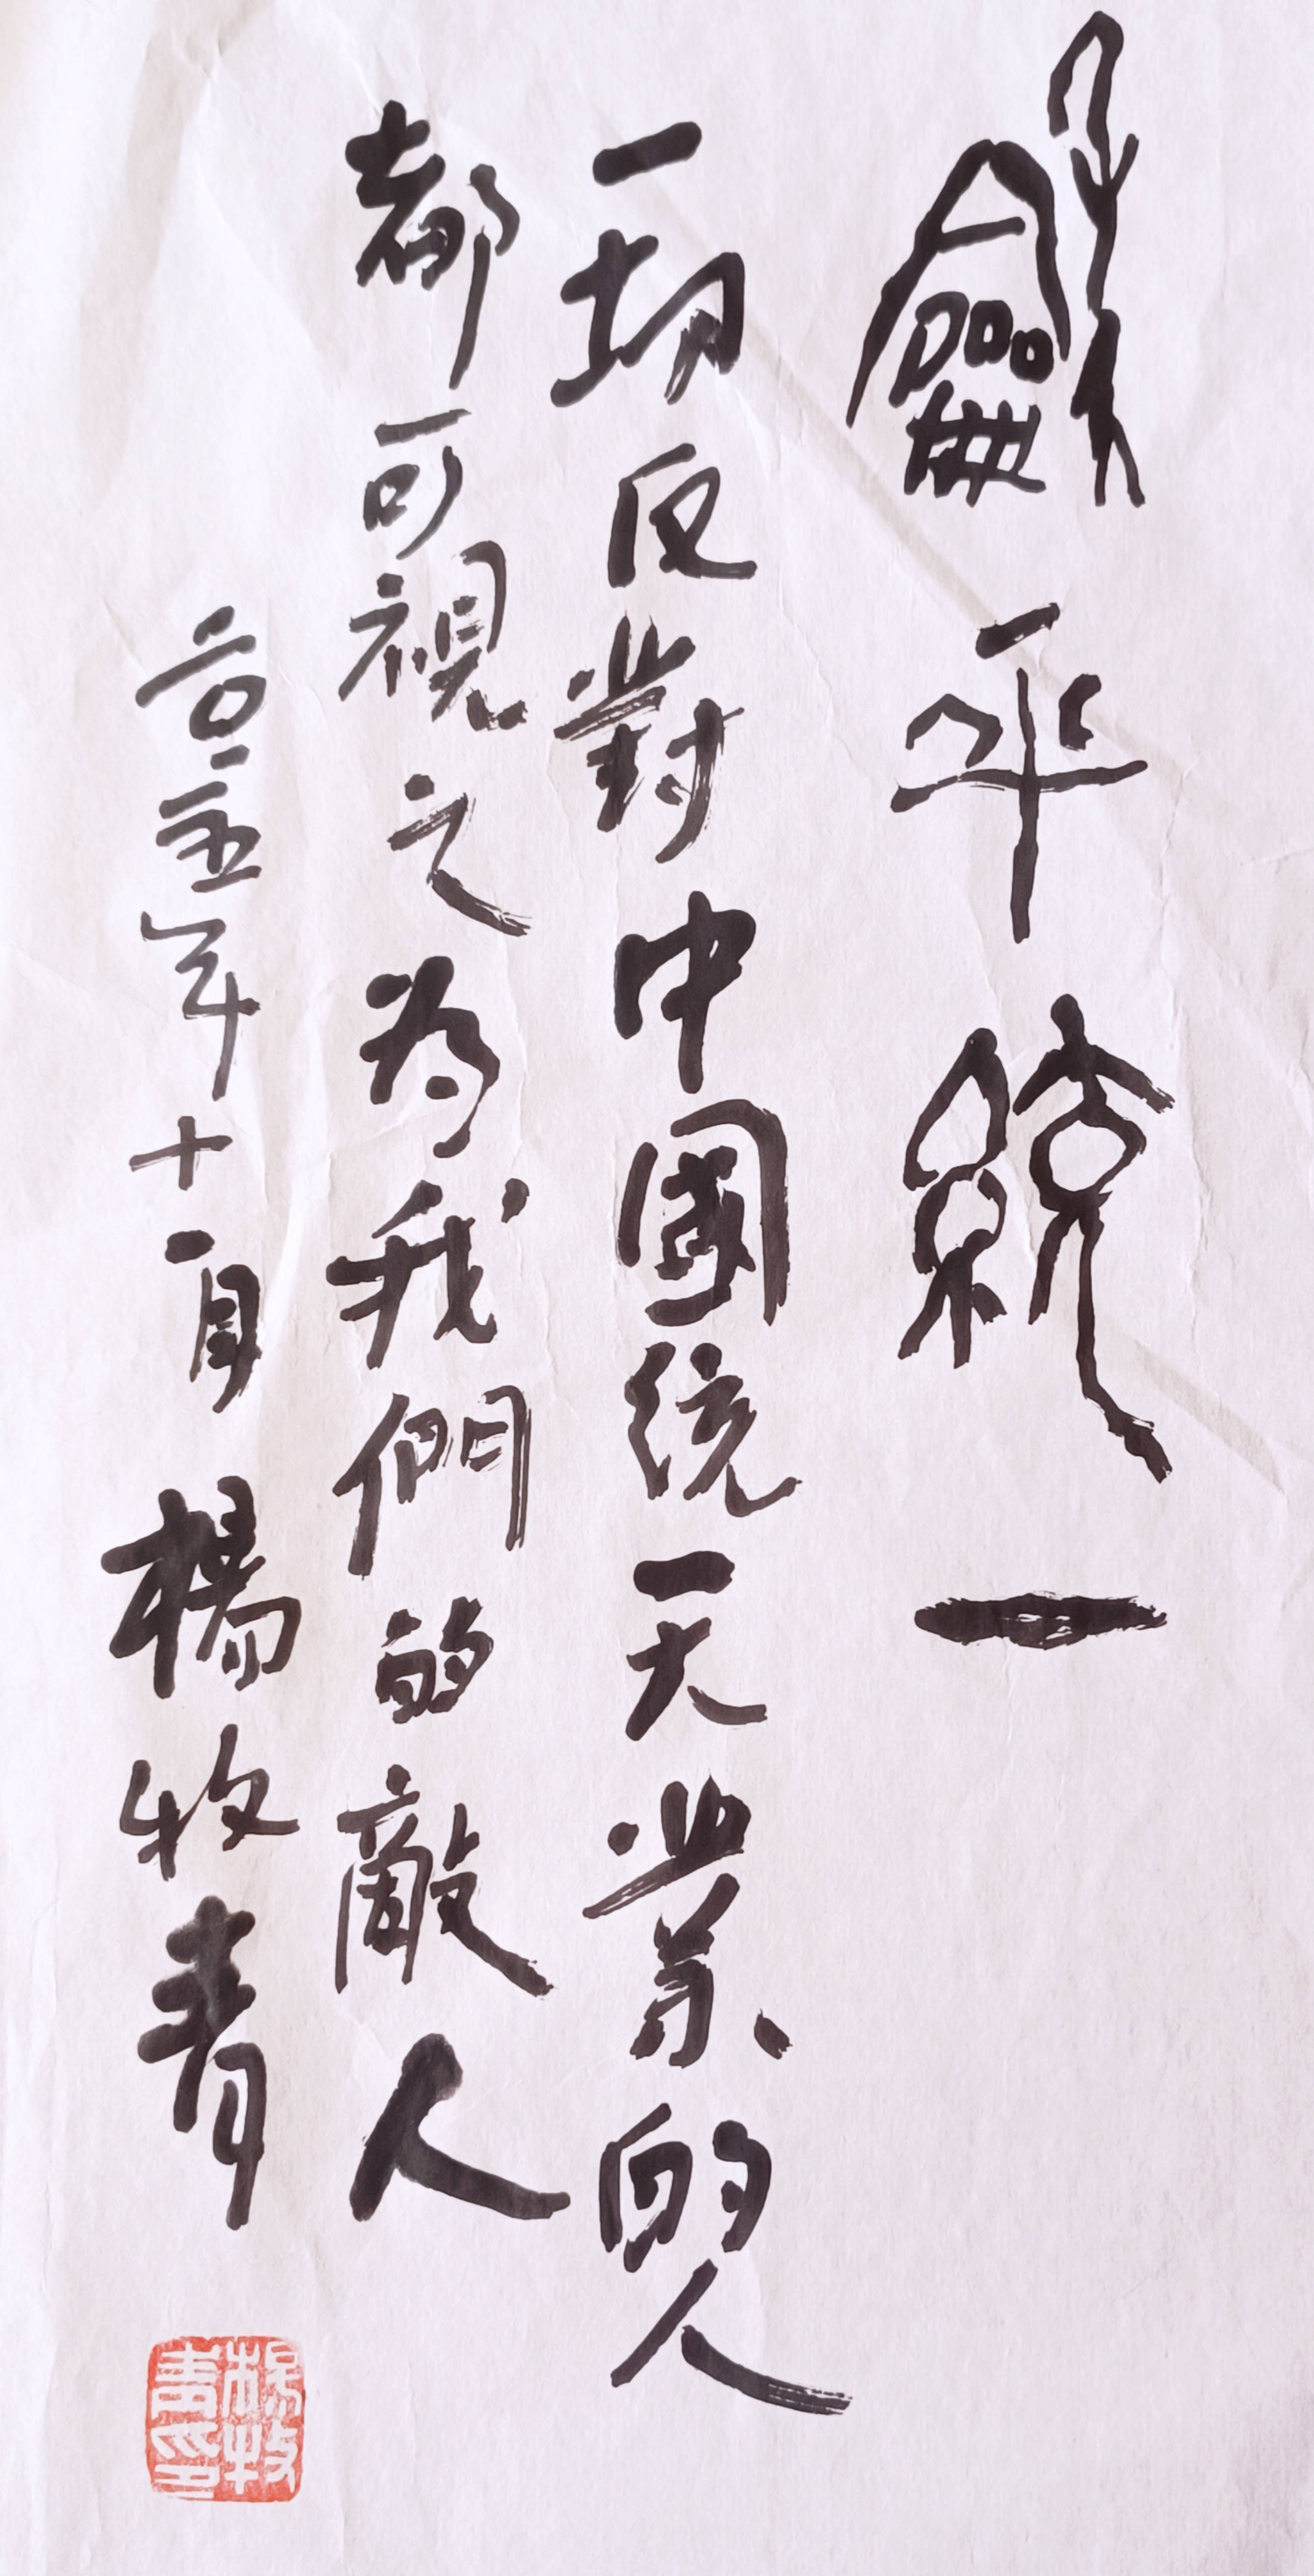 龢平統一
一切反對中國统一大業的人
都可視之为我們的敵人
二〇二五年十一月 楊牧青
楊牧青印